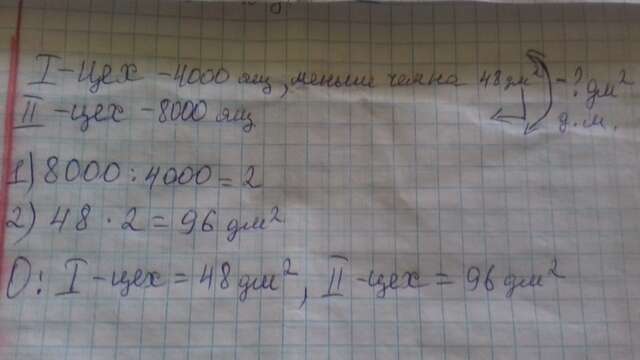 I - цех - 4000 ящ, меньше чем на 48 дм² - ? дм²
II - цех - 8000 ящ д.м.
1) 8000 : 4000 = 2
2) 48 · 2 = 96 дм²
О: I - цех = 48 дм², II - цех = 96 дм²